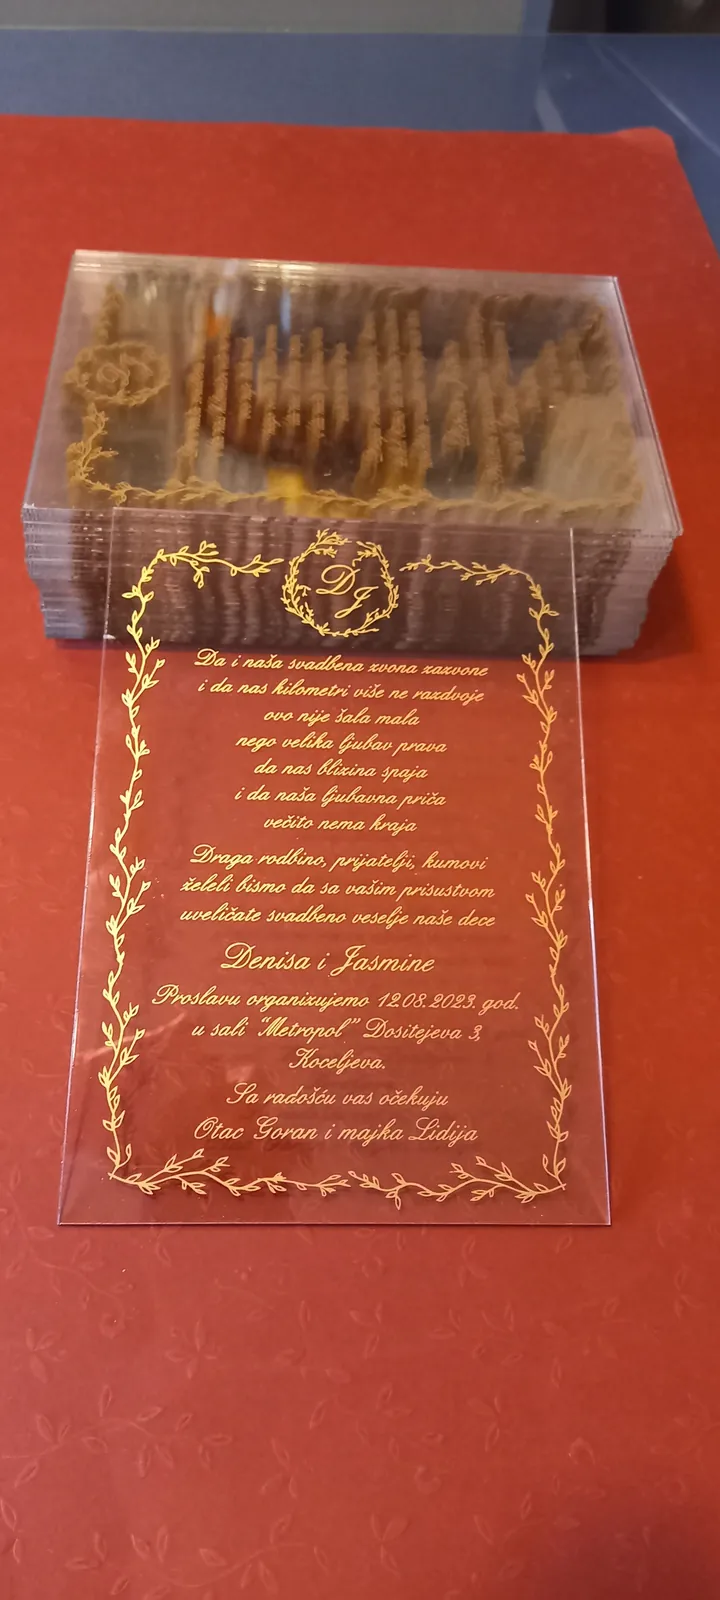 DJ
Da i naša svadbena zvona zazvone
i da nas kilometri više ne razdvoje
ovo nije šala mala
nego velika ljubav prava
da nas blizina spaja
i da naša ljubavna priča
večito nema kraja
Draga rodbino, prijatelji, kumovi
želeli bismo da sa vašim prisustvom
uveličate svadbeno veselje naše dece
Denisa i Jasmine
Proslavu organizujemo 12.08.2023. god.
u sali "Metropol" Dositejeva 3,
Koceljeva.
Sa radošću vas očekuju
Otac Goran i majka Lidija